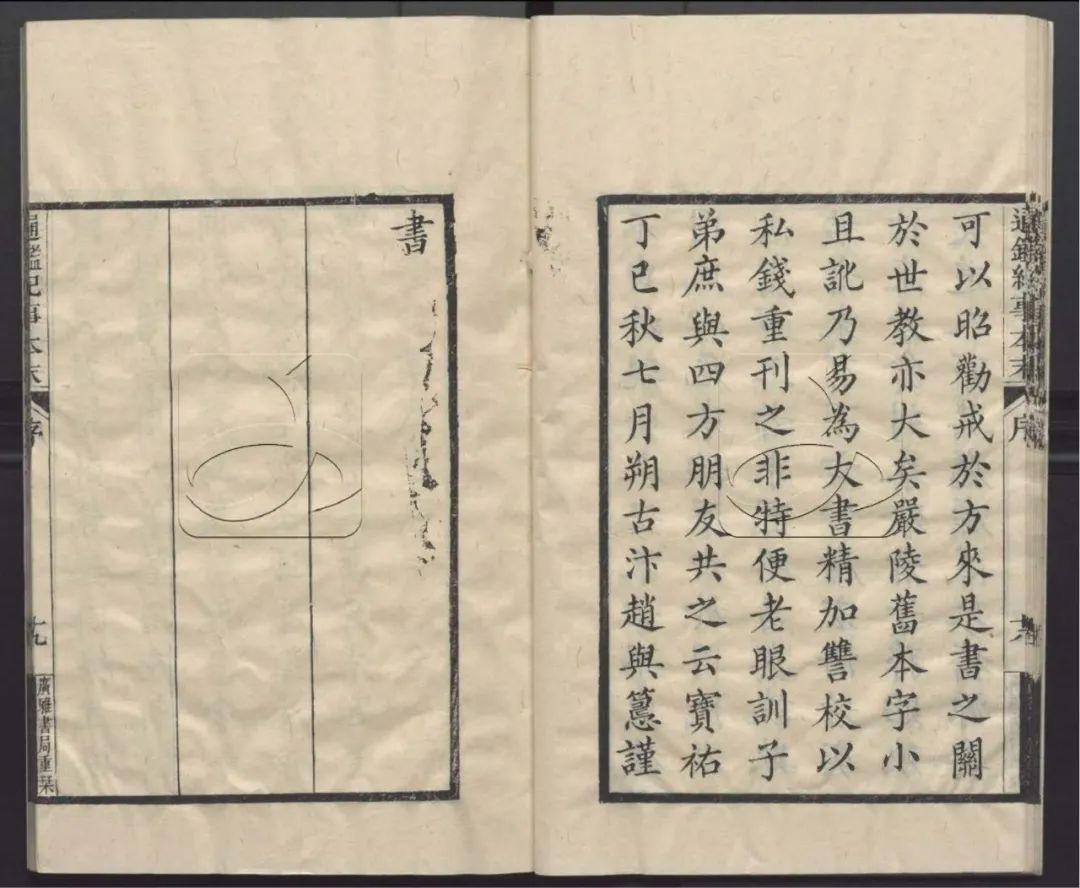 通鑑紀事本末
序
可以昭勸戒於方來是書之關
於世教亦大矣嚴陵舊本字小
且訛乃易為大書精加讐校以
私錢重刊之非特便老眼訓子
弟庶與四方朋友共之云寶祐
丁巳秋七月朔古汴趙與𥲅謹
書
通鑑紀事本末
序
十九
廣雅書局重栞